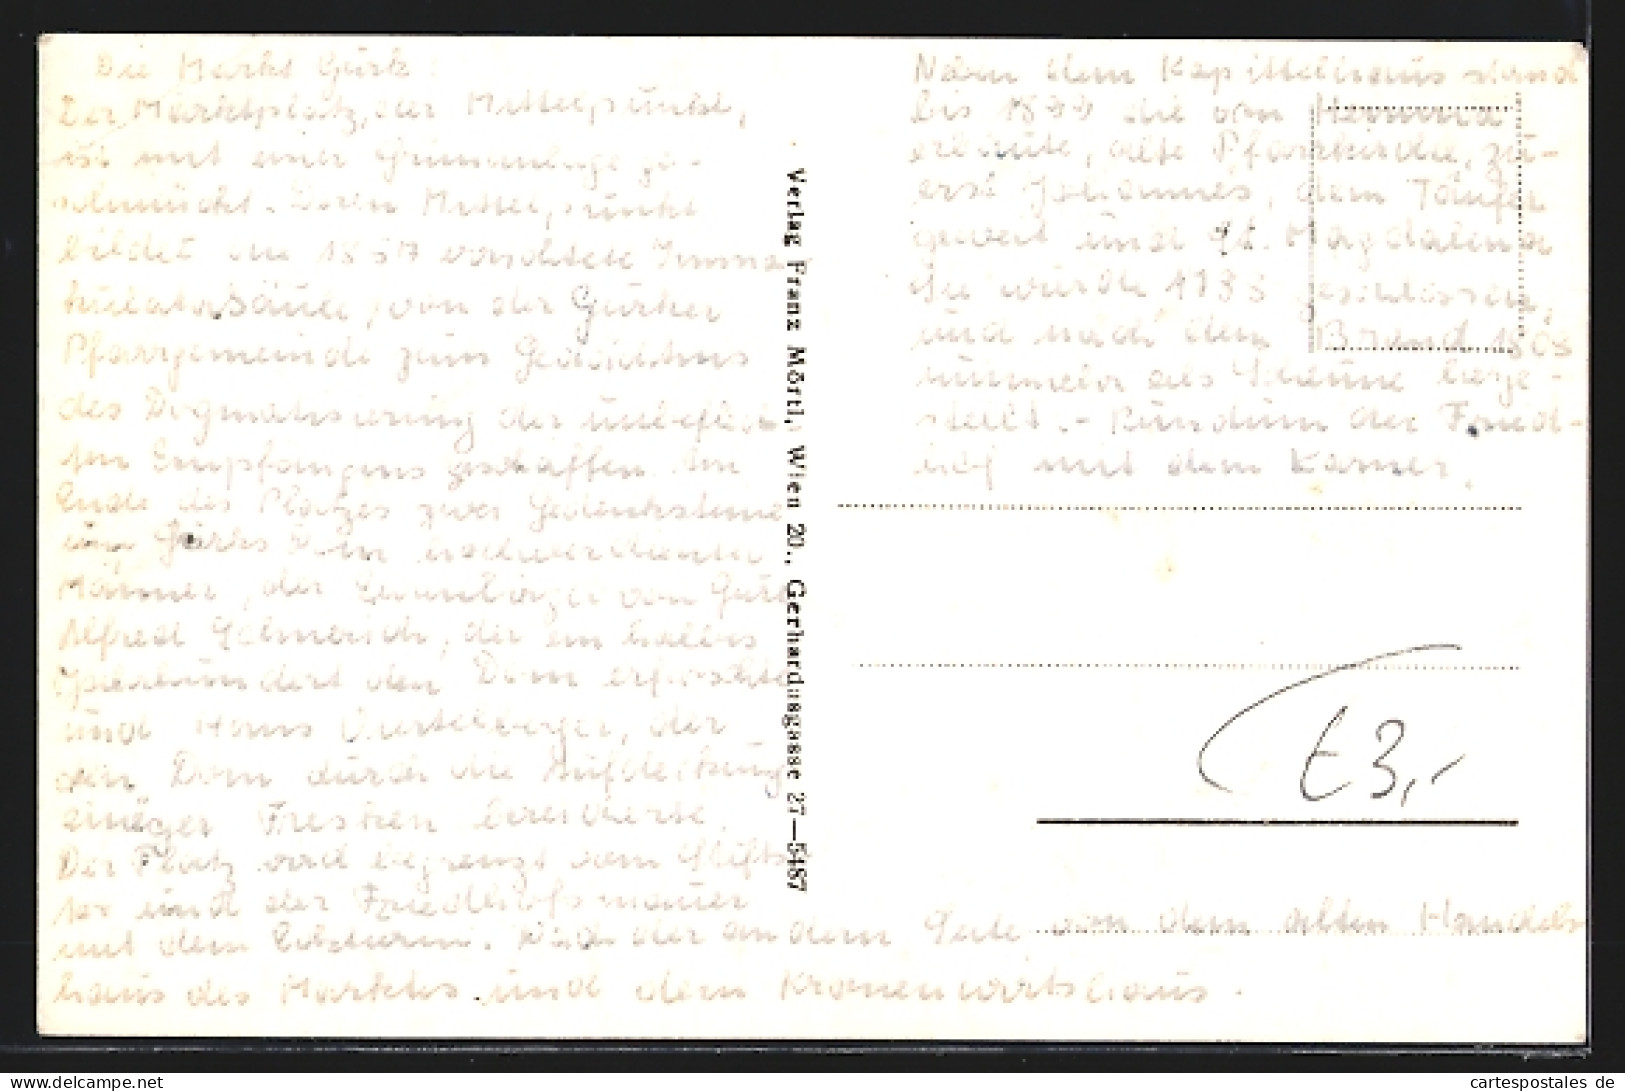 Die Markt Gurk:
Der Marktplatz, der Mittelpunkt,
ist mit einer Grünanlage ge-
schmückt. Deren Mittelpunkt
bildet die errichtete Imma-
kulatasäule, von der Gurker
Pfarrgemeinde zum Gedächtnis
des Dogmatisierung der unbefleck-
ten Empfängnis geschaffen. Am
Ende des Platzes zwei Gedenksteine
Gurks Dom hochverdienten
Männer, der Ehrenbürger von Gurk
Alfred Schnerich, der ein halbes
Jahrhundert den Dom erforschte
und Hans der
den Dom durch die Aufdeckung
einiger Fresken bereicherte.
Der Platz wird begrenzt vom Stifts-
und der Friedhofsmauer
mit dem Eckturm. Nach der andern Seite von dem alten Handels-
haus des Marktes und dem Kronenwirtshaus.
Verlag Franz Mörtl, Wien 20., Gerhardusgasse 27—5487
Neben dem Kapittelhaus stand
bis die von Hemma
erbaute, alte Pfarrkirche, zu-
erst Johannes, dem Täufer
geweit und Magdalena
Sie wurde geschlossen,
und nach dem Brand 1808
nunmehr als Scheune herge-
stellt. - Rundum der Fried-
hof mit dem Karner.
€ 3,-
cartespostales de